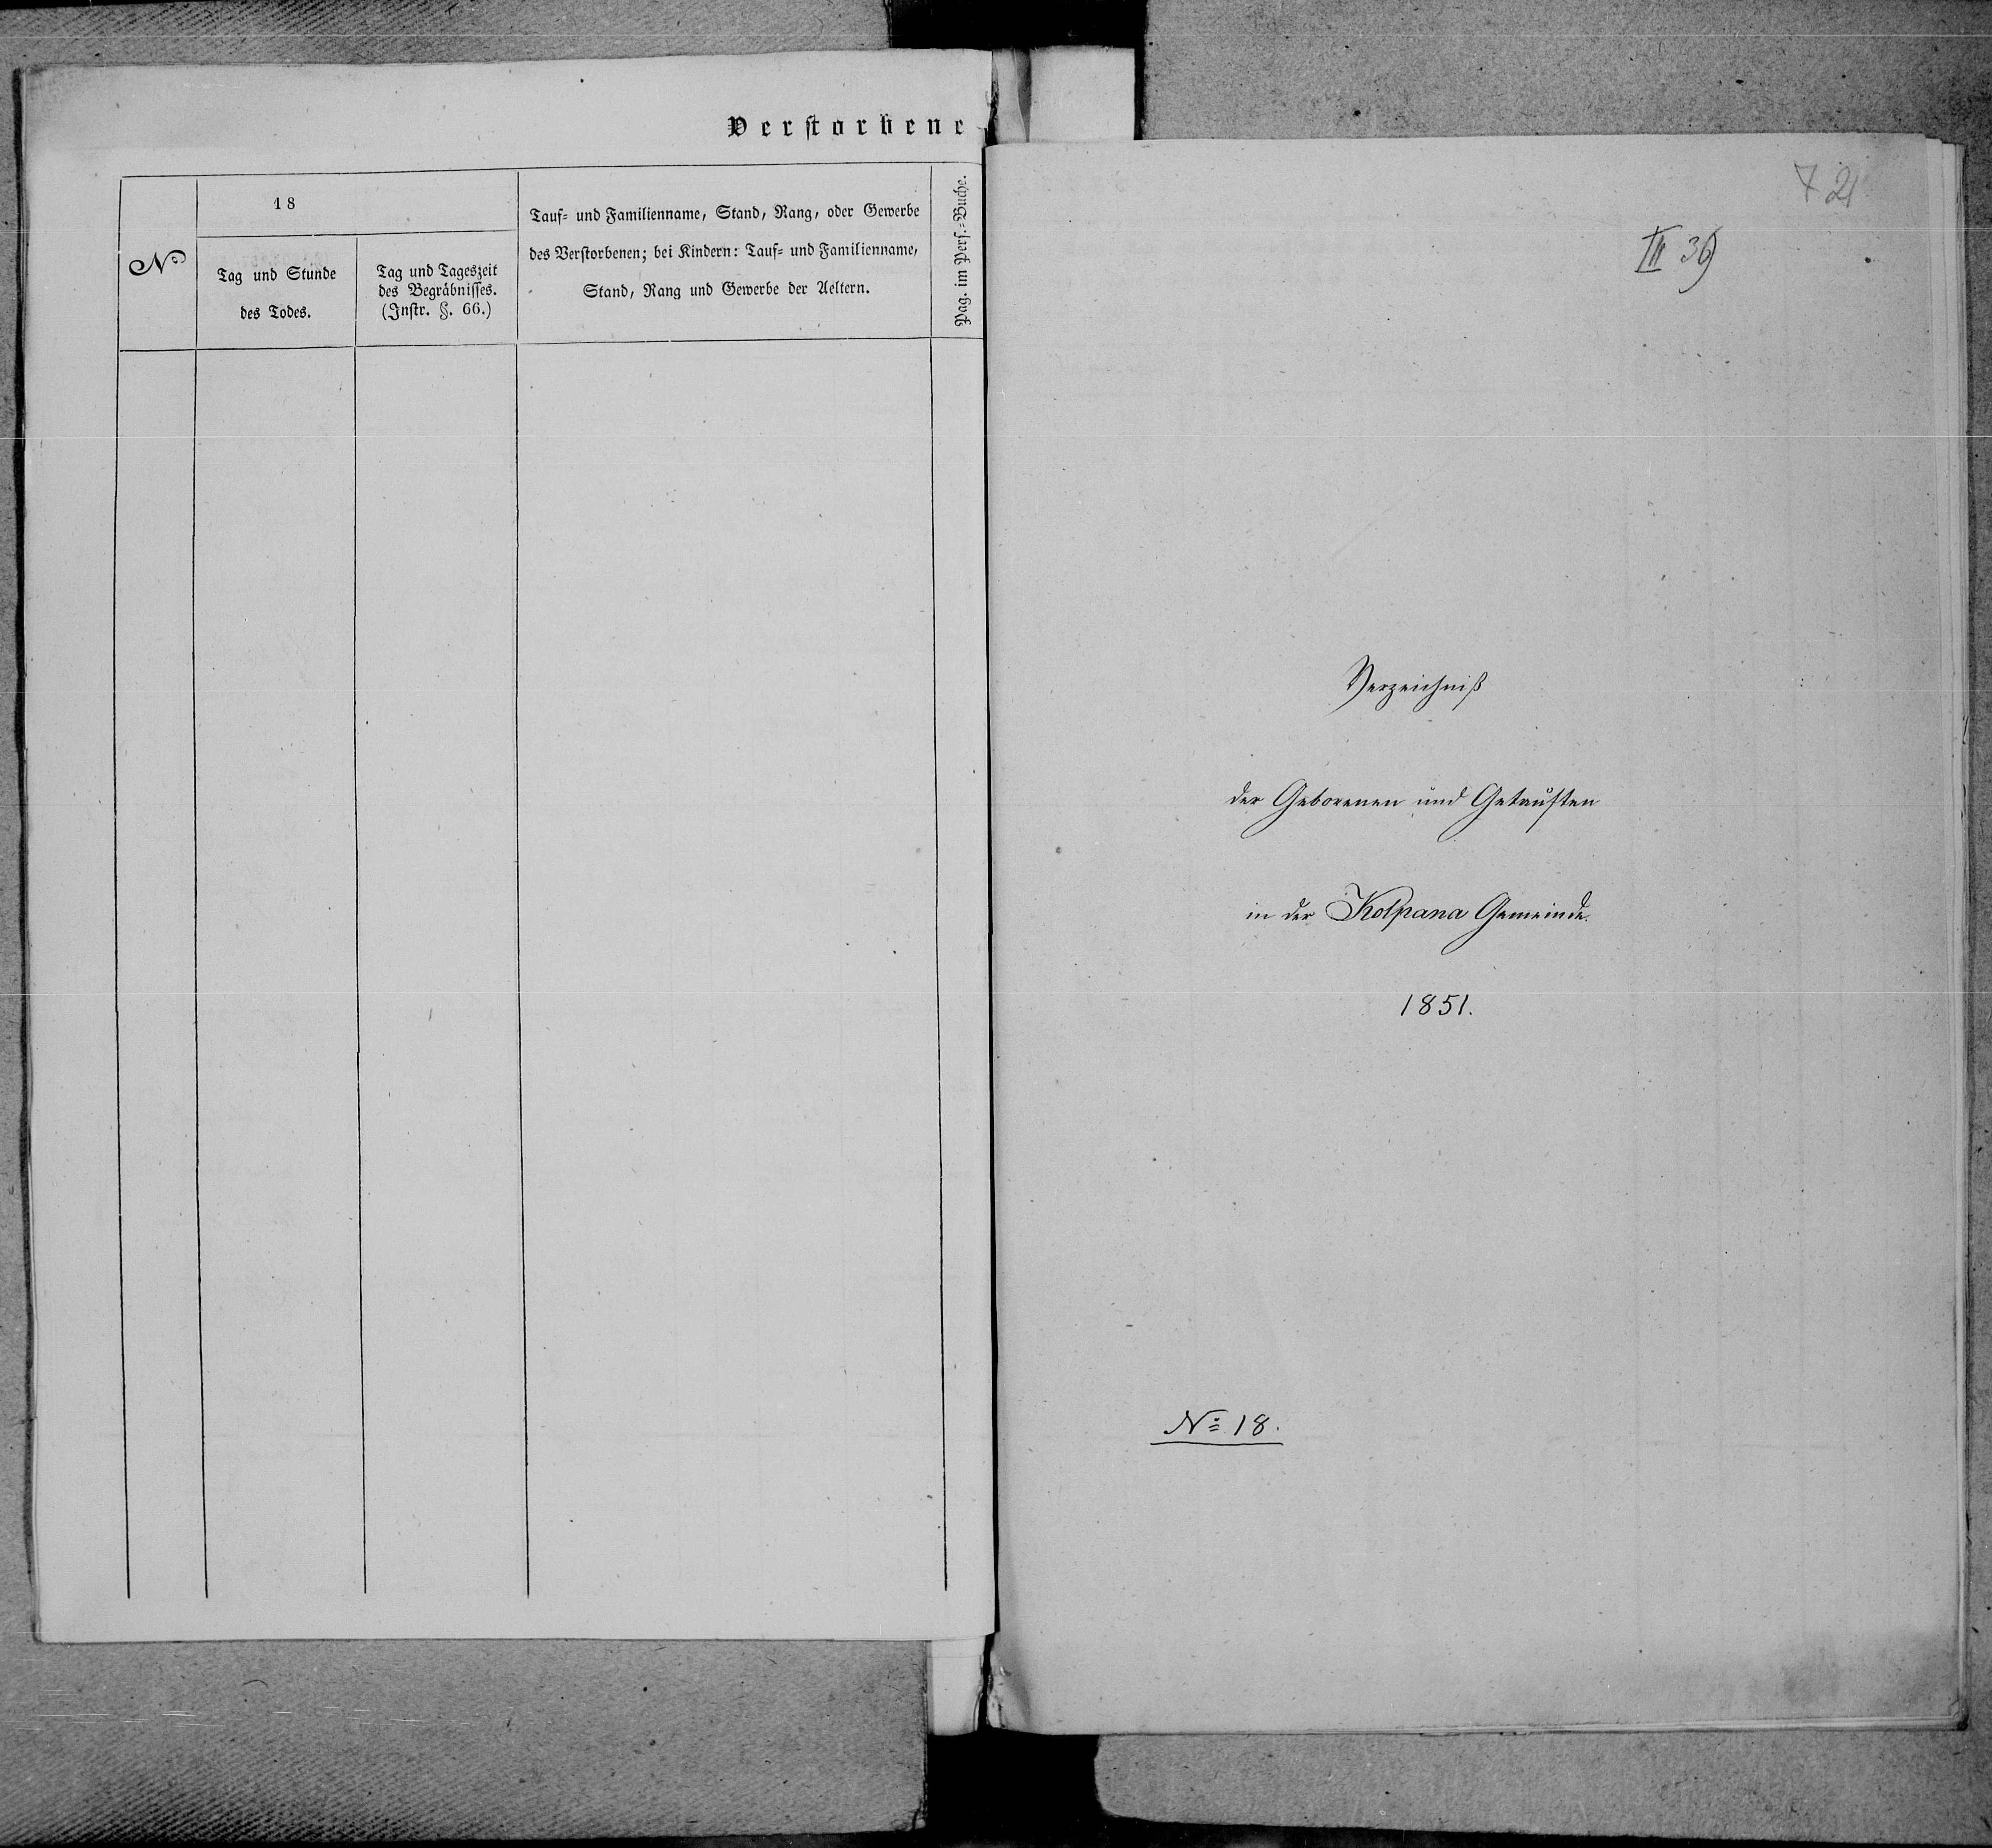 Verstorbene
18
Nº
Tag und Stunde
des Todes.
Tag und Tageszeit
des Begräbnisses.
(Instr. §. 66.)
Tauf- und Familienname, Stand, Rang, oder Gewerbe
des Verstorbenen; bei Kindern: Tauf- und Familienname,
Stand, Rang und Gewerbe der Aeltern.
Pag. im Pers.-Buche.
III 36)
Verzeichniß
der Geborenen und Getauften
in der Kolpana Gemeinde.
1851.
Nº 18.